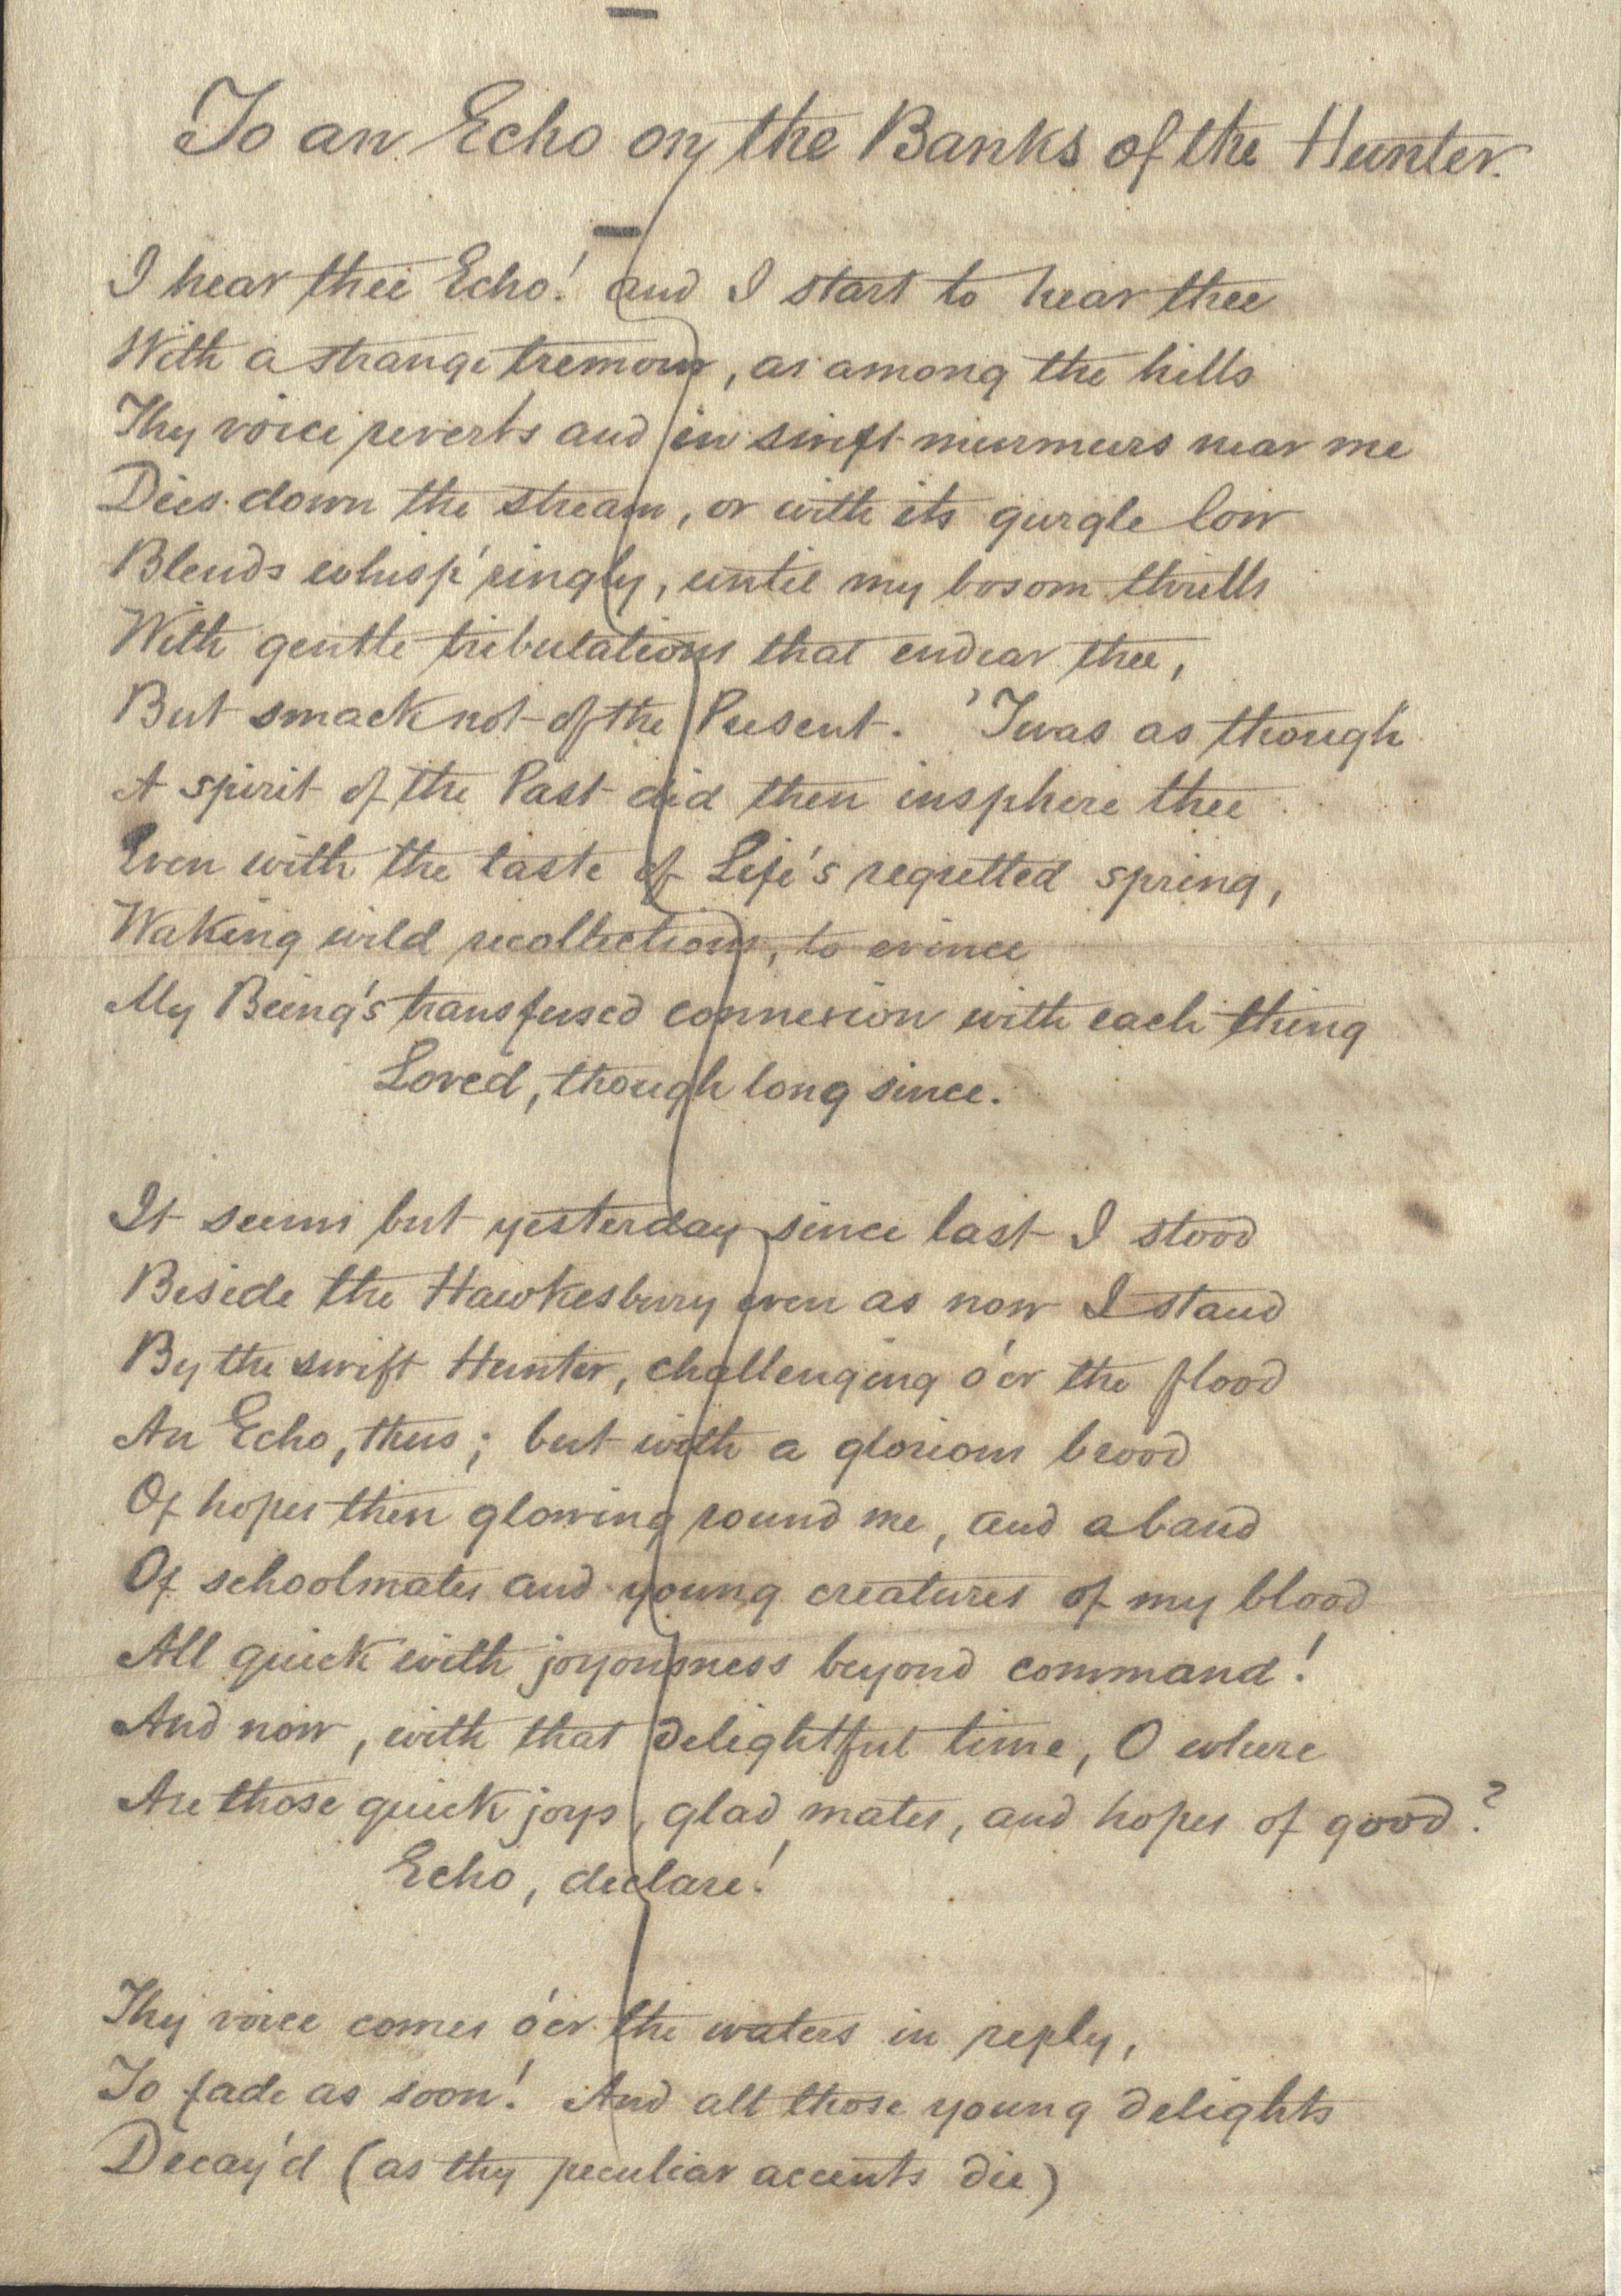 To an Echo on the Banks of the Hunter.
I hear thee Echo! and I start to hear thee
With a strange tremour, as among the hills
Thy voice reverts and in swift murmurs near me
Dies down the stream, or with its gurgle low
Blends whisp'ringly, until my bosom thrills
With gentle tribulations that endear thee,
But smack not of the Present. 'Twas as though
A spirit of the Past did then insphere thee
Even with the taste of Life's regretted spring,
Waking wild recollections, to evince
My Being's transfused connexion with each thing
Loved, though long since.
It seems but yesterday since last I stood
Beside the Hawkesbury even as now I stand
By the swift Hunter, challenging o'er the flood
An Echo, thus; but with a glorious brood
Of hopes then glowing round me, and a band
Of schoolmates and young creatures of my blood
All quick with joyousness beyond command!
And now, with that delightful time, O where
Are those quick joys, glad mates, and hopes of good?
Echo, declare!
Thy voice comes o'er the waters in reply,
To fade as soon! And all those young delights
Decay'd (as thy peculiar accents die)